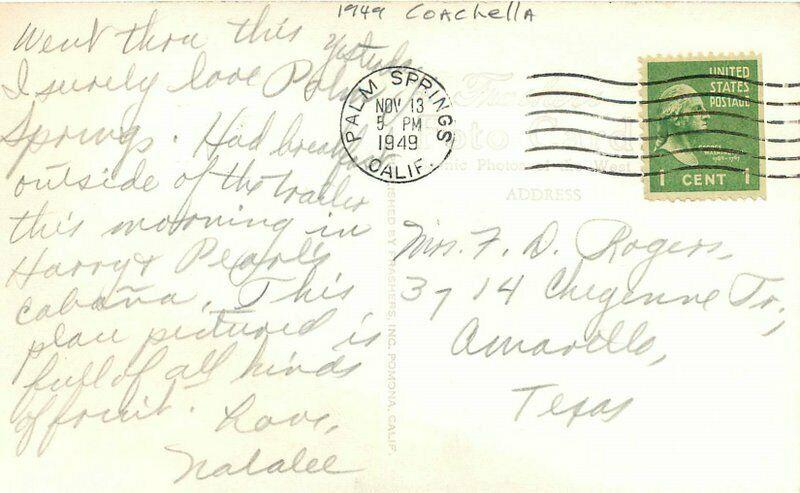 1949 COACHELLA
Went thru this yesterday
I surely love Palm
Springs. Had breakfast
outside of the trailer
this morning in
Harry & Pearl's
cabaña. This
place pictured is
full of all kinds
of fruit. Love,
Natalee
PALM SPRINGS
NOV 13
5 PM
1949
CALIF.
UNITED
STATES
POSTAGE
1 CENT 1
Foto Card
Photos of the West
ADDRESS
BY FRASHERS, INC. POMONA, CALIF.
Mrs. F. D. Rogers,
3714 Cheyenne Tr.,
Amarillo,
Texas